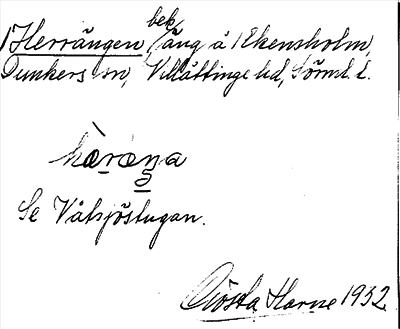 bek.
1 Herrängen, äng å 1 Ekensholm,
Dunkers sn, Villåttinge hd, Sörml. l.
hæræŋa
Se Våtsjöstugan.
Gösta Harne 1932.